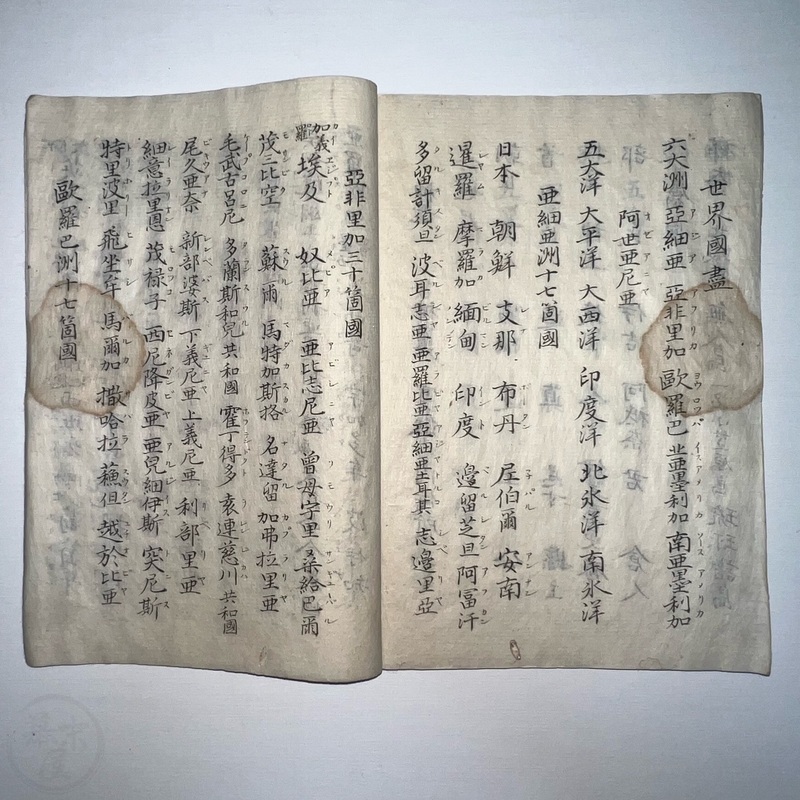 世界國盡
六大洲 亞細亜 亞非里加 歐羅巴 北亜墨利加 南亜墨利加
阿世亜尼亜
五大洋 大平洋 大西洋 印度洋 北氷洋 南氷洋
亜細亜洲十七箇國
日本 朝鮮 支那 布丹 尼伯爾 安南
暹羅 摩羅加 緬甸 印度 邉留芝旦 阿冨汗
多留計須旦 波耳志亜 亜羅比亜 亞細亜土耳其 志邉里亞
亞非里加三十箇國
加義羅 埃及 奴比亜 亜比志尼亜 曽母字里 桑給巴爾
茂三比空 蘓爾 馬特加斯挌 名達留 加弗拉里亜
毛武古呂尼 多蘭斯和兒共和國 霍丁得多 袁連慈川共和國
尾久亜奈 新部婆斯 下義尼亜 上義尼亜 利部里亜
細意拉里恩 茂禄子 西尼降皮亜 亜兒細伊斯 突尼斯
特里波里 飛坐年 馬爾加 撒哈拉 蘓但 越於比亜
歐羅巴洲十七箇國